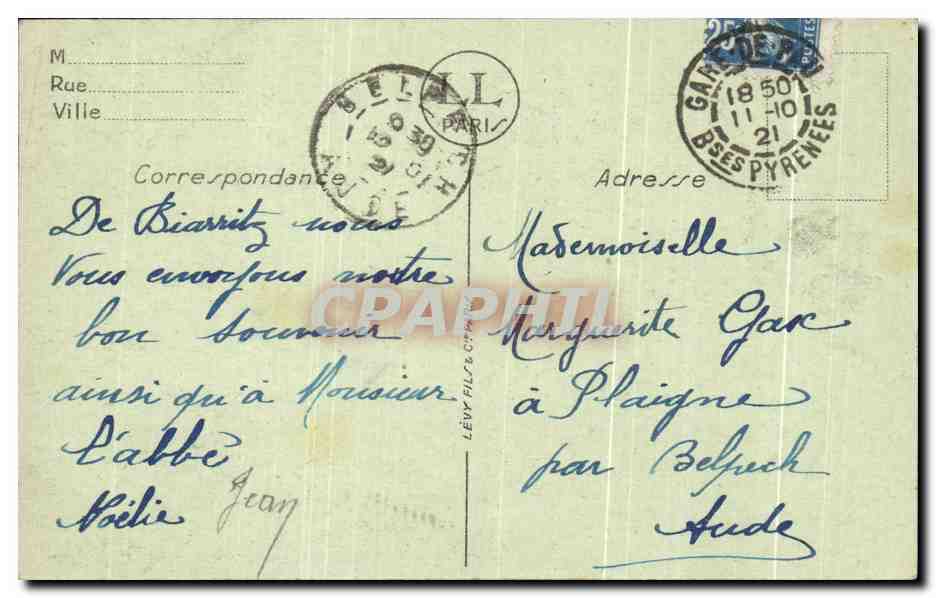 M
Rue
Ville
LL
PARIS
BELPECH
6 30
25
POSTES
GARE-DE-PAU
18 50
11 -10
21
Bses PYRENEES
Correspondance
Adresse
De Biarritz nous
Vous envoyons notre
bon souvenir
ainsi qu'à Monsieur
l'abbé
Noélie
Jean
LÉVY FILS & Cie PARIS
CPAPHIL
Mademoiselle
Marguerite Gax
à Plaigne
par Belpech
Aude